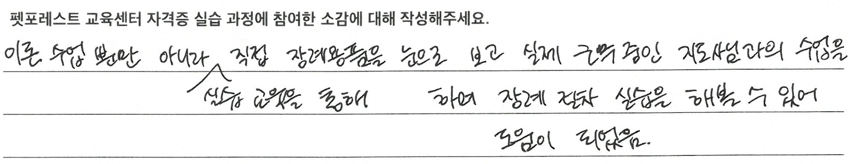 펫포레스트 교육센터 자격증 실습 과정에 참여한 소감에 대해 작성해주세요.
이론 수업 뿐만 아니라 직접 장례용품을 눈으로 보고 실제 근무중인 지도사님과의 수업을
실습 교육을 통해 하며 장례 절차 실습을 해볼 수 있어
도움이 되었음.